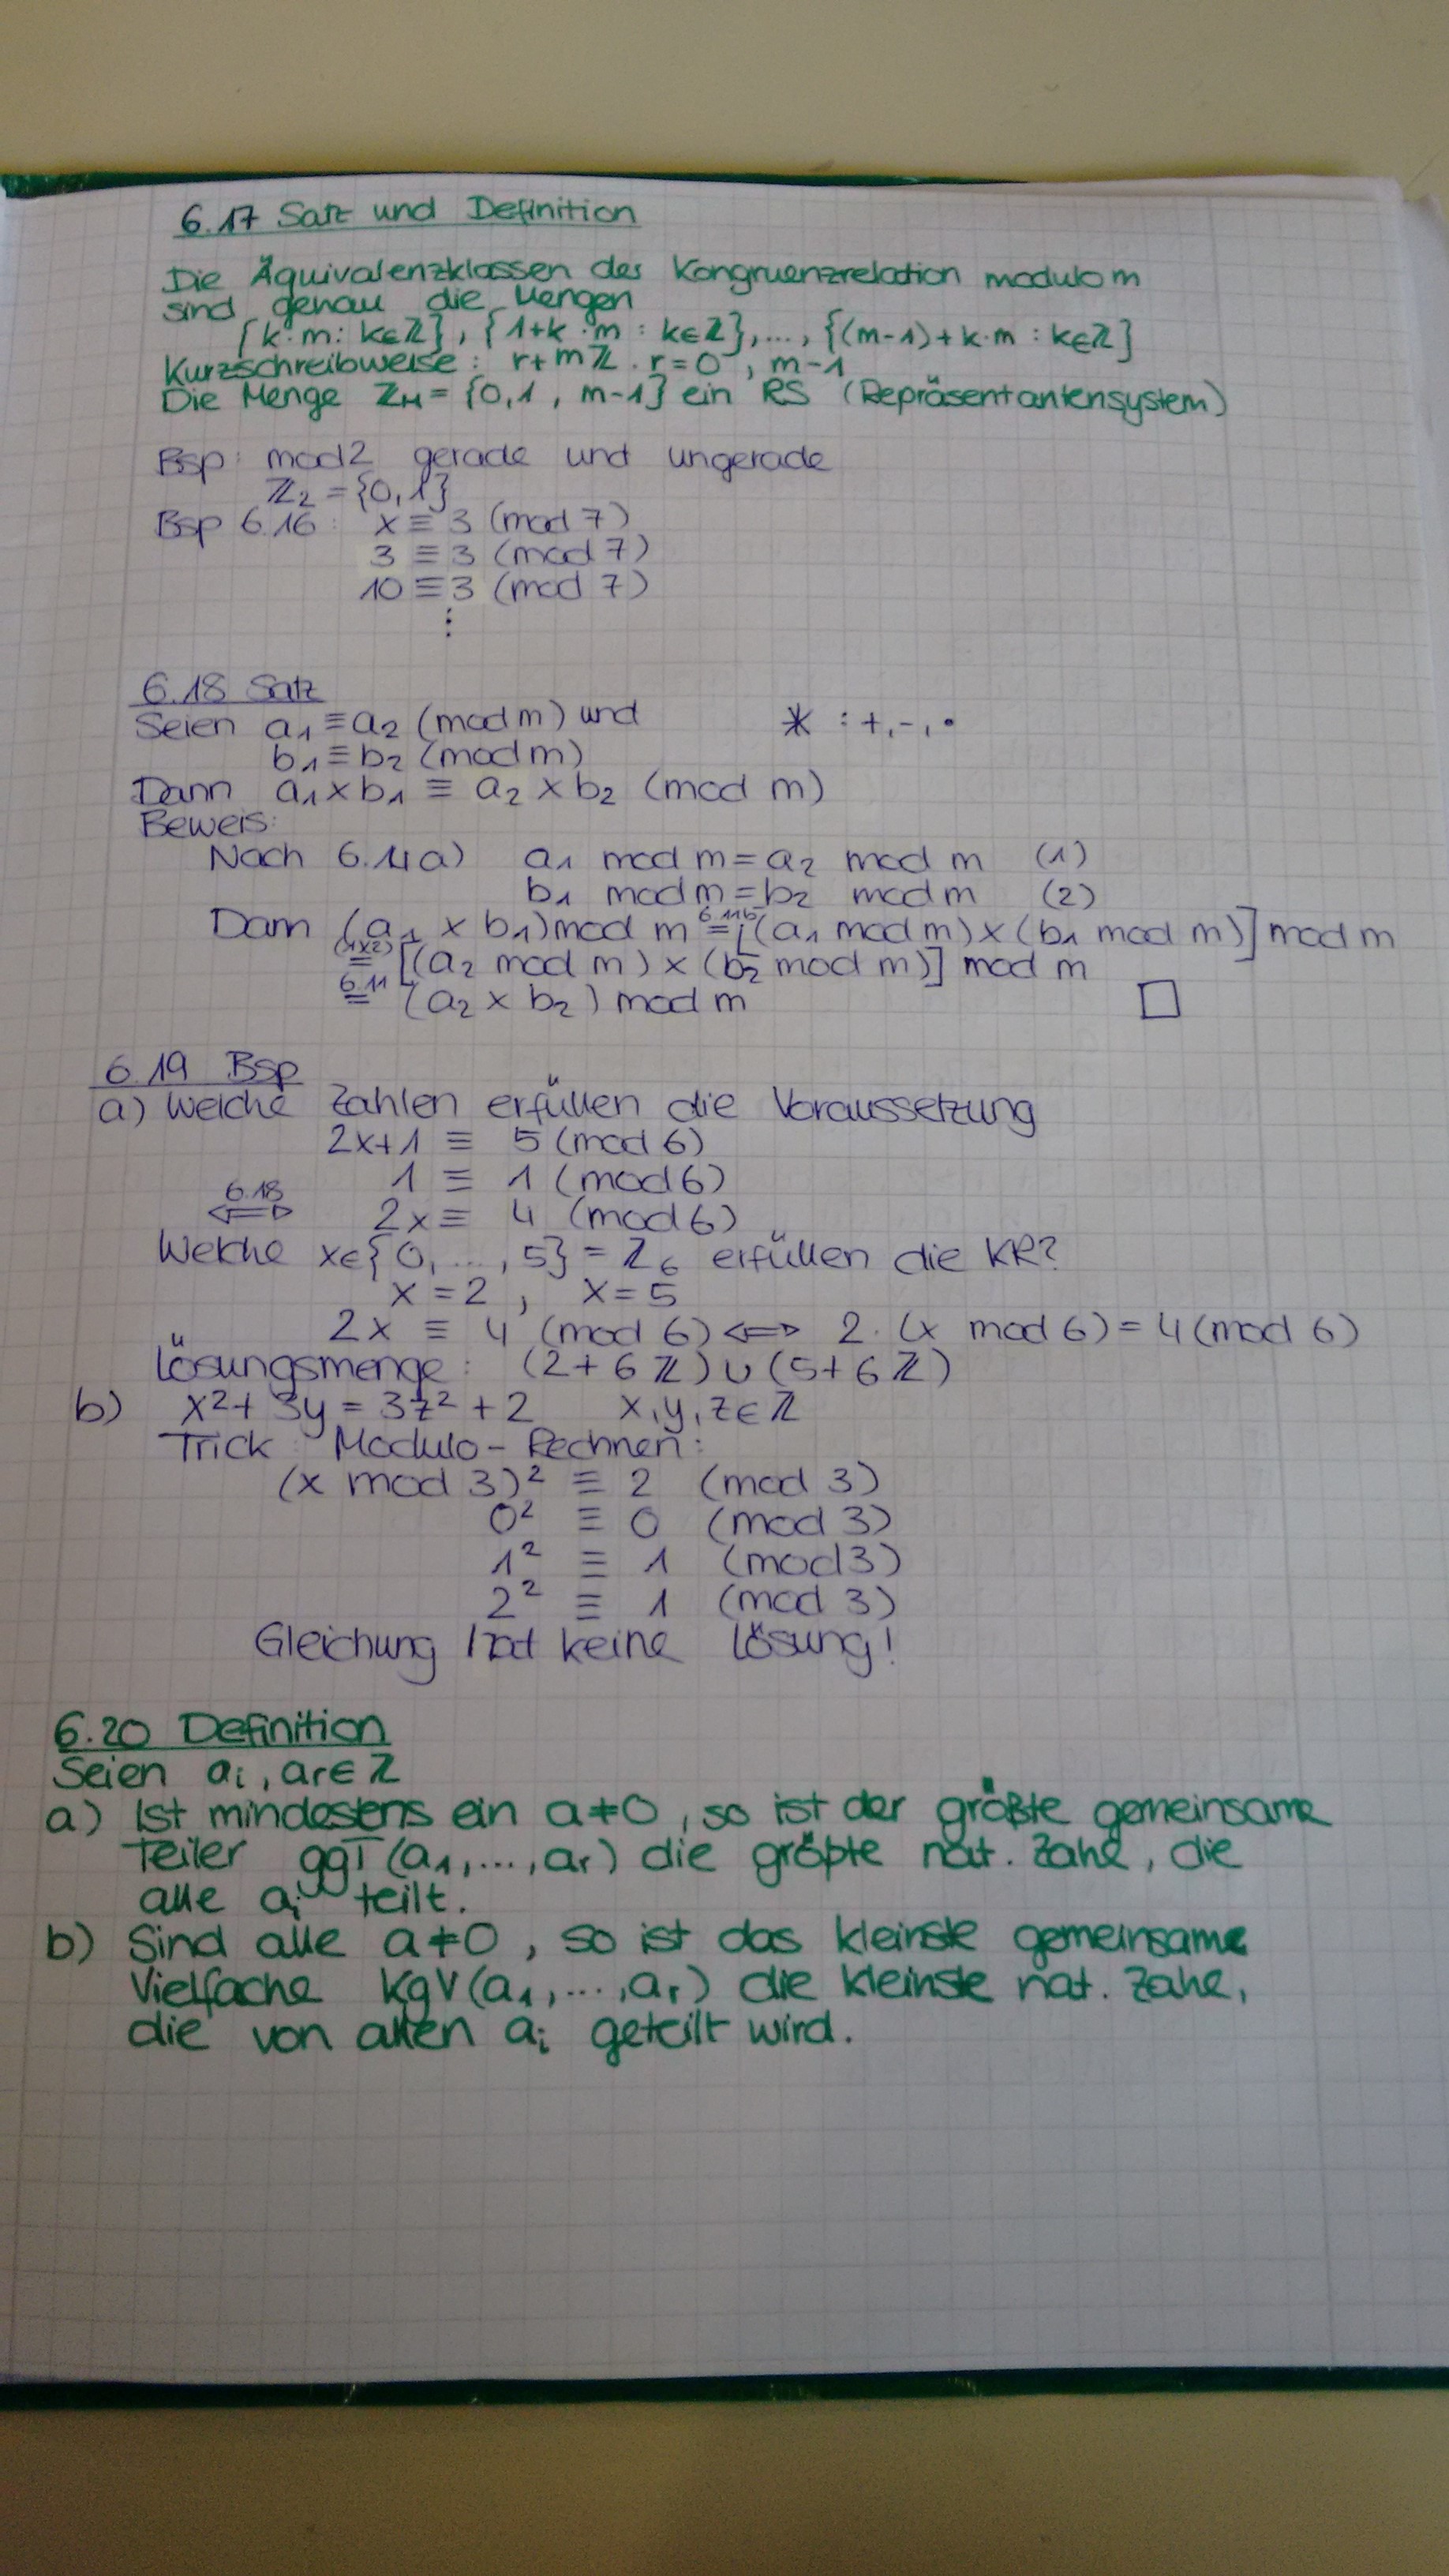 6.17 Satz und Definition
Die Äquivalenzklassen der Kongruenzrelation modulo m
sind genau die Mengen
{k·m: k∈ℤ}, {1+k·m : k∈ℤ},..., {(m-1)+k·m : k∈ℤ}
Kurzschreibweise: r+mℤ . r=0 , m-1
Die Menge ℤM={0,1 , m-1} ein RS (Repräsentantensystem)
Bsp: mod2 gerade und ungerade
ℤ₂={0,1}
Bsp 6.16: x≡3 (mod 7)
3≡3 (mod 7)
10≡3 (mod 7)
⋮
6.18 Satz
Seien a₁≡a₂ (mod m) und * : +,-,•
b₁≡b₂ (mod m)
Dann a₁×b₁ ≡ a₂×b₂ (mod m)
Beweis:
Nach 6.14a) a₁ mod m=a₂ mod m (1)
b₁ mod m=b₂ mod m (2)
Dann (a₁ × b₁)mod m 6.11b= [(a₁ mod m)×(b₁ mod m)] mod m
(1×2)= [(a₂ mod m)×(b₂ mod m)] mod m
6.11= (a₂×b₂) mod m □
6.19 Bsp
a) Welche Zahlen erfüllen die Voraussetzung
2x+1 ≡ 5 (mod 6)
1 ≡ 1 (mod 6)
6.18⇔ 2x≡ 4 (mod 6)
Welche x∈{0,...,5}=ℤ₆ erfüllen die KR?
x=2, x=5
2x ≡ 4 (mod 6) ⇔ 2·(x mod 6)=4(mod 6)
Lösungsmenge: (2+6ℤ)∪(5+6ℤ)
b) x²+3y=3z²+2 x,y,z∈ℤ
Trick: Modulo-Rechnen:
(x mod 3)² ≡ 2 (mod 3)
0² ≡ 0 (mod 3)
1² ≡ 1 (mod 3)
2² ≡ 1 (mod 3)
Gleichung hat keine Lösung!
6.20 Definition
Seien aᵢ, ar∈ℤ
a) Ist mindestens ein a≠0, so ist der größte gemeinsame
Teiler ggT(a₁,...,ar) die größte nat. Zahl, die
alle aᵢ teilt.
b) Sind alle a≠0, so ist das kleinste gemeinsame
Vielfache kgV(a₁,...,ar) die kleinste nat. Zahl,
die von allen aᵢ geteilt wird.